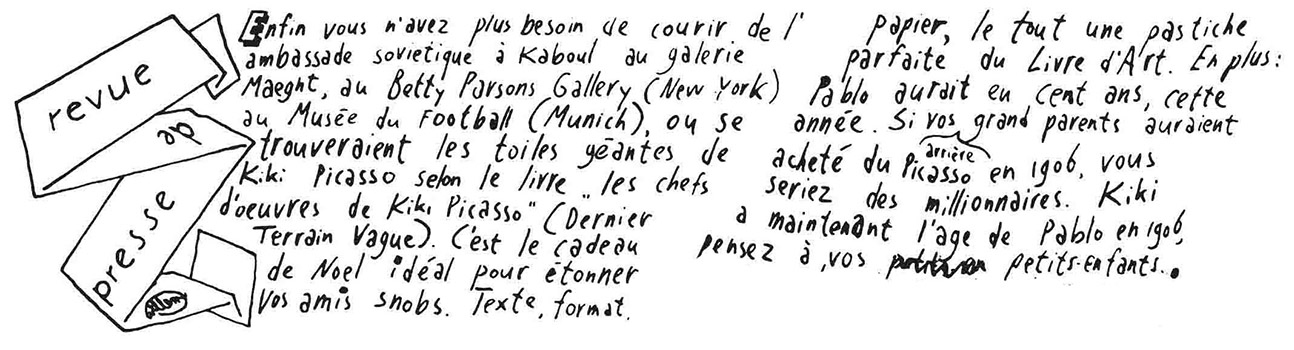 revue
de
presse
Enfin vous n'avez plus besoin de courir de l'
ambassade sovietique à Kaboul au galerie
Maeght, au Betty Parsons Gallery (New York)
au Musée du Football (Munich), ou se
trouveraient les toiles géantes de
Kiki Picasso selon le livre "les chefs
d'oeuvres de Kiki Picasso" (Dernier
Terrain Vague). C'est le cadeau
de Noel idéal pour étonner
vos amis snobs. Texte, format.
papier, le tout une pastiche
parfaite du Livre d'Art. En plus:
Pablo aurait eu cent ans, cette
année. Si vos grand parents auraient
arrière
acheté du Picasso en 1906, vous
seriez des millionnaires. Kiki
a maintenant l'age de Pablo en 1906,
pensez à vos petits-enfants..